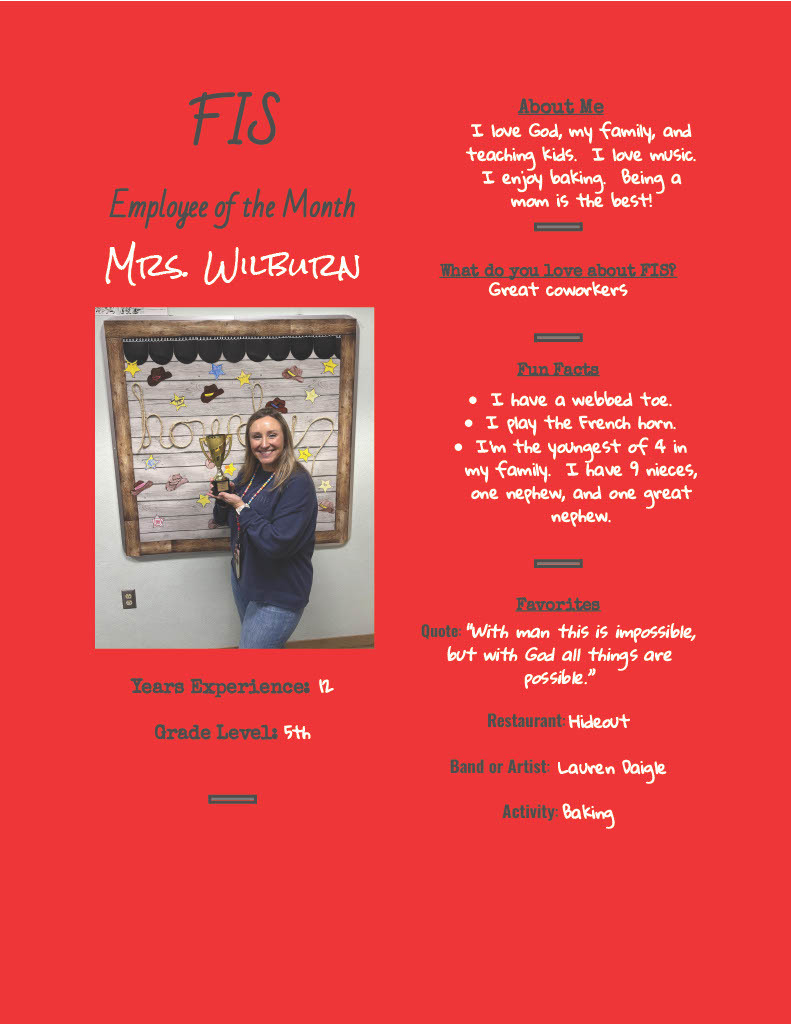 FIS
Employee of the Month
Mrs. Wilburn
howdy
Years Experience: 12
Grade Level: 5th
About Me
I love God, my family, and
teaching kids. I love music.
I enjoy baking. Being a
mom is the best!
What do you love about FIS?
Great coworkers
Fun Facts
• I have a webbed toe.
• I play the French horn.
• I'm the youngest of 4 in
my family. I have 9 nieces,
one nephew, and one great
nephew.
Favorites
Quote: "With man this is impossible,
but with God all things are
possible."
Restaurant: Hideout
Band or Artist: Lauren Daigle
Activity: Baking